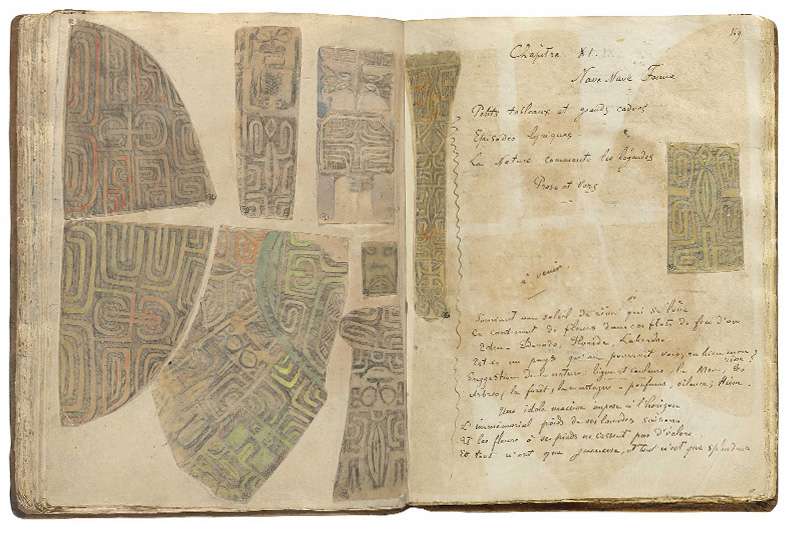 169
Chapitre XI.
Nave Nave Fenua
Petits tableaux et grands cadres
Episodes lyriques
La Nature commente les légendes
Prose et Vers
à venir.
Souriant au soleil de qui se lève
Ce continent de fleurs dans ces flots de feu d'or
Eden - Eldorado, Floride, Labrador
Est-ce un pays qu'on pourrait voir, ou bien mon rêve ?
Suggestion de la nature: ligne et couleurs, la Mer, les
Arbres, la forêt, la montagne - parfums,
Une idole massive impose à l'horizon
L'immémorial poids de ses lourdes
Et les fleurs à ses pieds ne cessent pas d'éclore
Et tout n'est que jeunesse, et tout n'est que splendeur